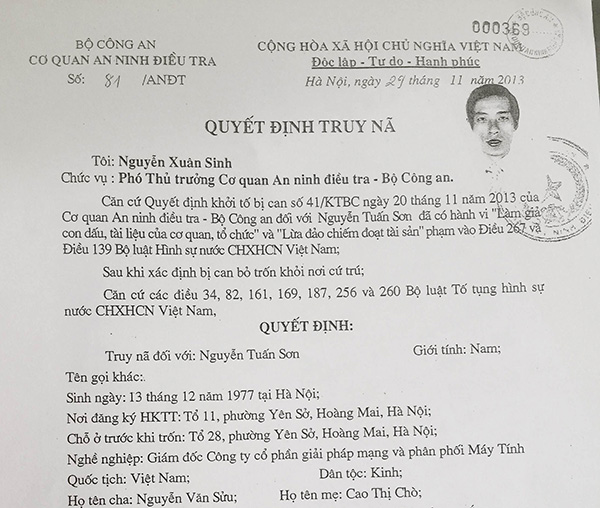 000369
BỘ CÔNG AN
CỘNG HÒA XÃ HỘI CHỦ NGHĨA VIỆT NAM
CƠ QUAN AN NINH ĐIỀU TRA
Độc lập - Tự do - Hạnh phúc
Số: 81 /ANĐT
Hà Nội, ngày 29 tháng 11 năm 2013
QUYẾT ĐỊNH TRUY NÃ
Tôi: Nguyễn Xuân Sinh
Chức vụ : Phó Thủ trưởng Cơ quan An ninh điều tra - Bộ Công an.
Căn cứ Quyết định khởi tố bị can số 41/KTBC ngày 20 tháng 11 năm 2013 của
Cơ quan An ninh điều tra - Bộ Công an đối với Nguyễn Tuấn Sơn đã có hành vi "Làm giả
con dấu, tài liệu của cơ quan, tổ chức" và "Lừa đảo chiếm đoạt tài sản" phạm vào Điều 267 và
Điều 139 Bộ luật Hình sự nước CHXHCN Việt Nam;
Sau khi xác định bị can bỏ trốn khỏi nơi cư trú;
Căn cứ các điều 34, 82, 161, 169, 187, 256 và 260 Bộ luật Tố tụng hình sự
nước CHXHCN Việt Nam,
QUYẾT ĐỊNH:
Truy nã đối với: Nguyễn Tuấn Sơn Giới tính: Nam;
Tên gọi khác:
Sinh ngày: 13 tháng 12 năm 1977 tại Hà Nội;
Nơi đăng ký HKTT: Tổ 11, phường Yên Sở, Hoàng Mai, Hà Nội;
Chỗ ở trước khi trốn: Tổ 28, phường Yên Sở, Hoàng Mai, Hà Nội;
Nghề nghiệp: Giám đốc Công ty cổ phần giải pháp mạng và phân phối Máy Tính
Quốc tịch: Việt Nam; Dân tộc: Kinh;
Họ tên cha: Nguyễn Văn Sửu; Họ tên mẹ: Cao Thị Chò;